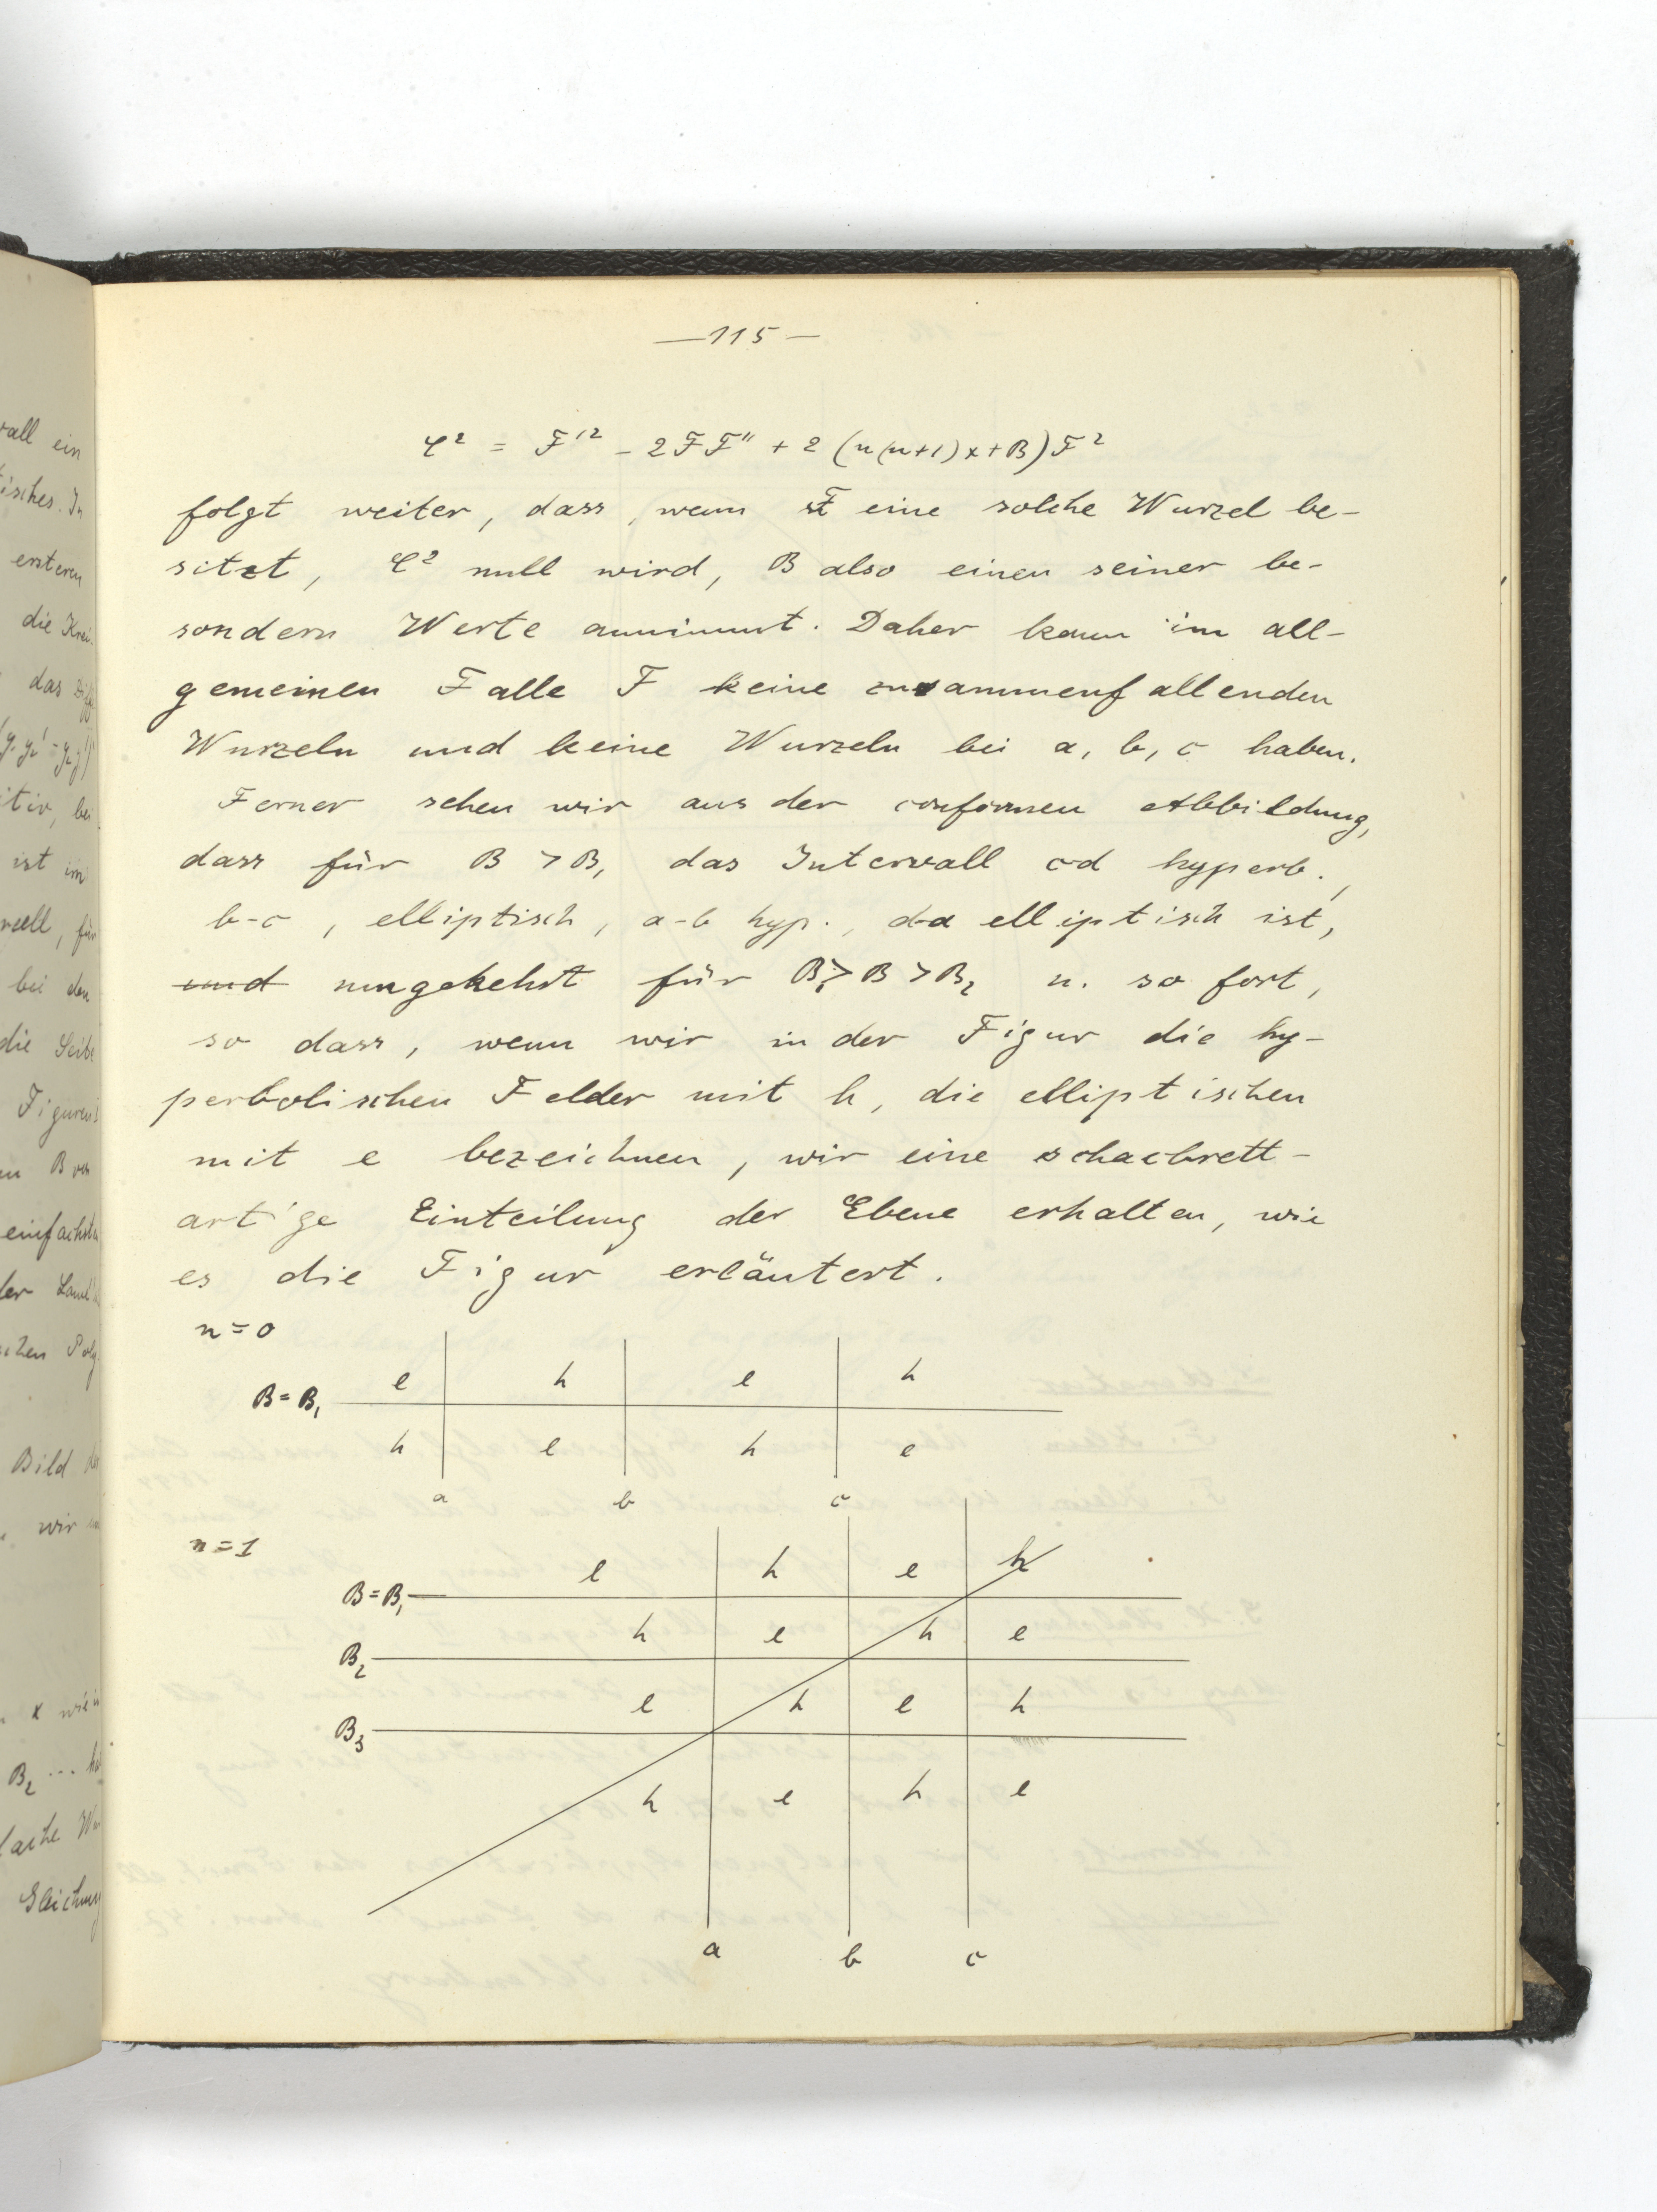 —115—
C² = F'² - 2FF" + 2(n(n+1)x+B)F²
folgt weiter, dass, wenn F eine solche Wurzel be-
sitzt, C² null wird, B also einen seiner be-
sondern Werte annimmt. Daher kann im all-
gemeinen Falle F keine zusammenfallenden
Wurzeln und keine Wurzeln bei a, b, c haben.
Ferner sehen wir aus der conformen Abbildung,
dass für B > B₁ das Intervall cd hyperb.,
b-c, elliptisch, a-b hyp., d-a elliptisch ist,
und umgekehrt für B₁ > B > B₂ u. so fort,
so dass, wenn wir in der Figur die hy-
perbolischen Felder mit h, die elliptischen
mit e bezeichnen, wir eine schachbrett-
artige Einteilung der Ebene erhalten, wie
es die Figur erläutert.
n=0
e h e h
B=B₁
h e h e
a b c
n=1
e h e h
B=B₁
h e h e
B₂
e h e h
B₃
h e h e
a b c
all ein
tisches. In
ersteren
das
ist im
bei den
die Seite
einfachsten
Bild
wir
x wie
B₂ ...
Gleichung